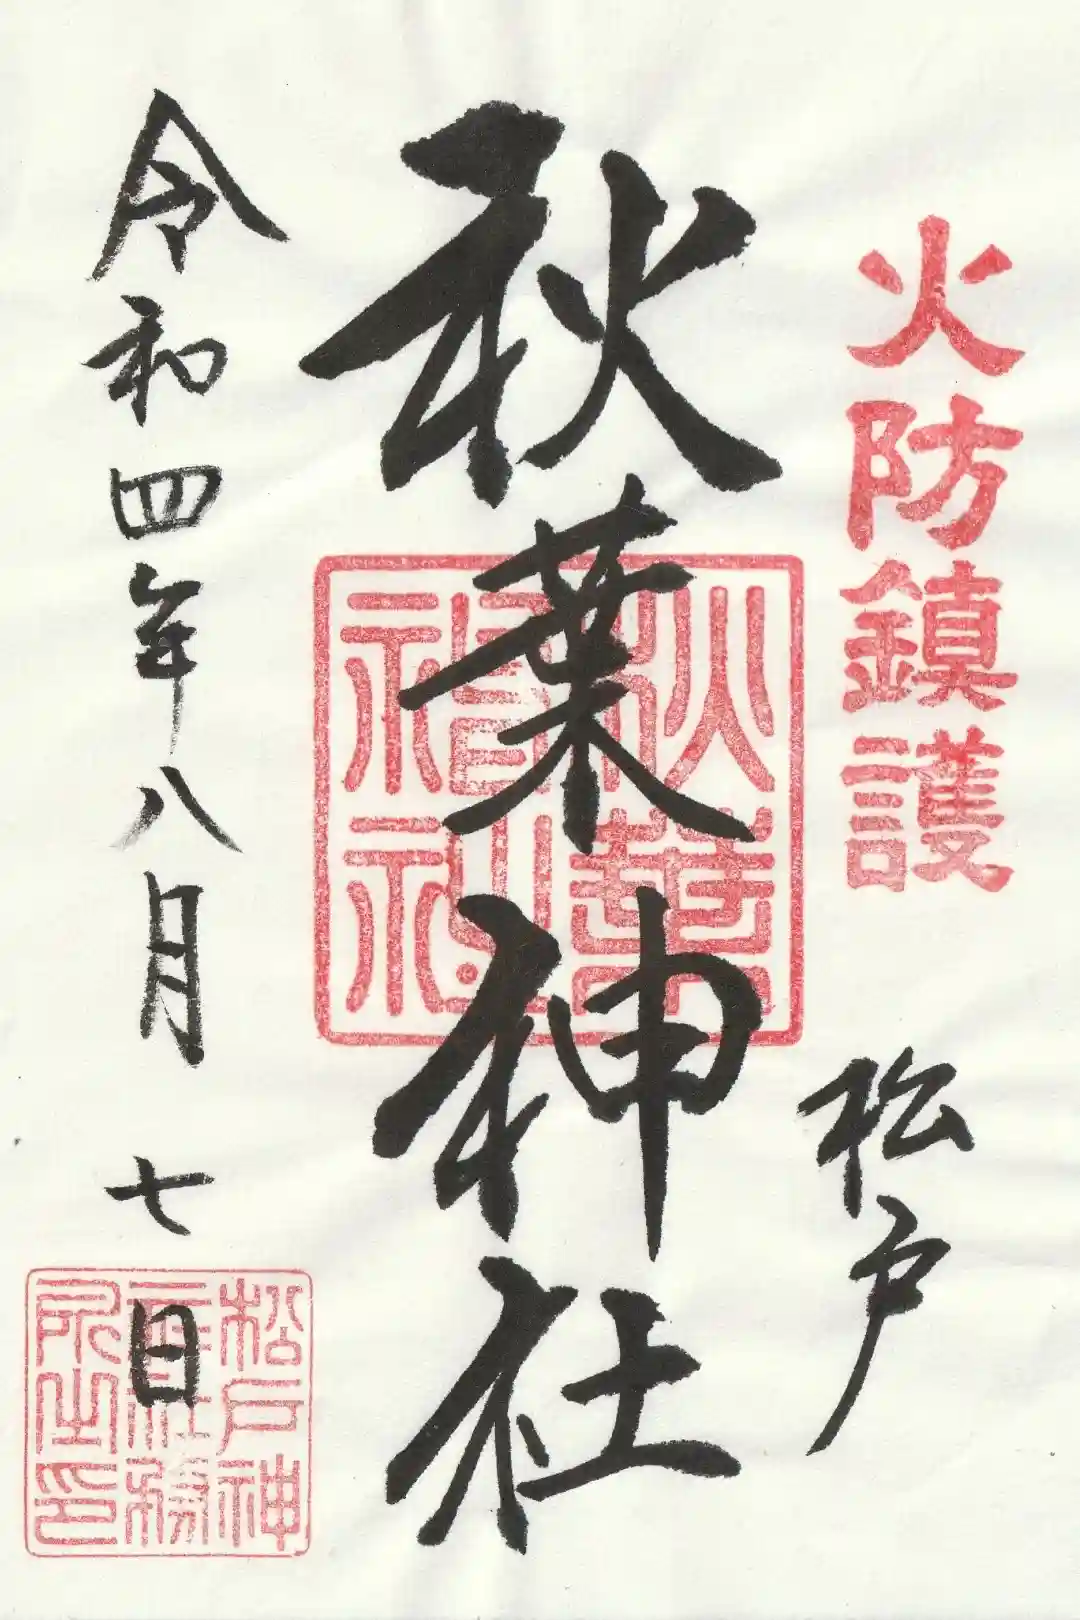 火防鎮護
松戸
秋葉神社
秋葉
神社
令和四年八月七日
松戸神
社務
所之印